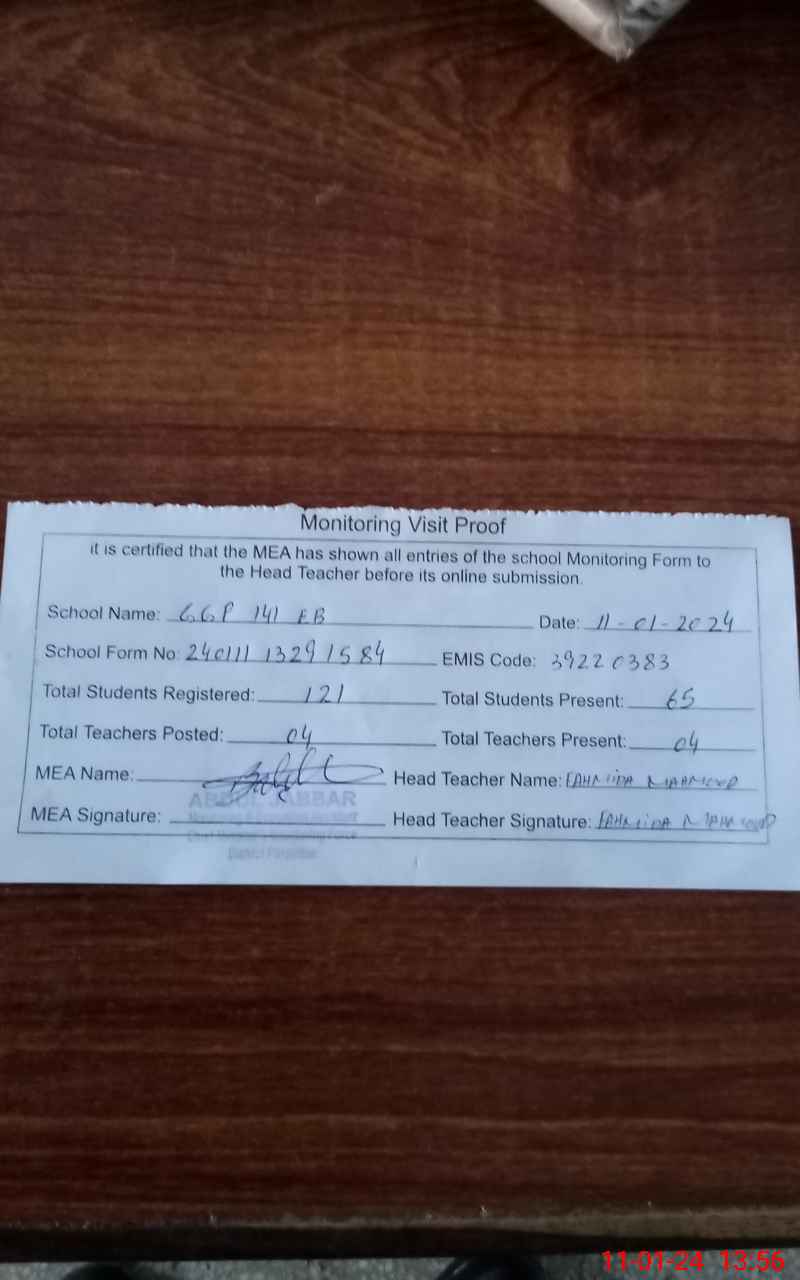 Monitoring Visit Proof
it is certified that the MEA has shown all entries of the school Monitoring Form to
the Head Teacher before its online submission.
School Name: GGP 141 EB Date: 11-01-2024
School Form No: 240111 1329 1584 EMIS Code: 39220383
Total Students Registered: 121 Total Students Present: 65
Total Teachers Posted: 04 Total Teachers Present: 04
MEA Name: Head Teacher Name: FAHMIDA MAHMOOD
ABDUL JABBAR
MEA Signature: Head Teacher Signature: FAHMIDA MAHMOOD
11-01-24 13:56